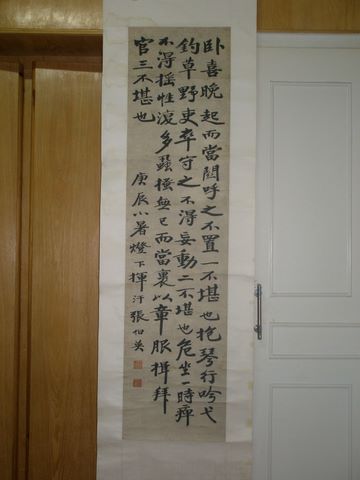 卧喜晚起而當關呼之不置一不堪也抱琴行吟弋
釣草野吏卒守之不得妄動二不堪也危坐一時痺
不得摇性復多蝨搔無已而當裹以章服揖拜
官三不堪也
庚辰小暑燈下揮汗張伯英